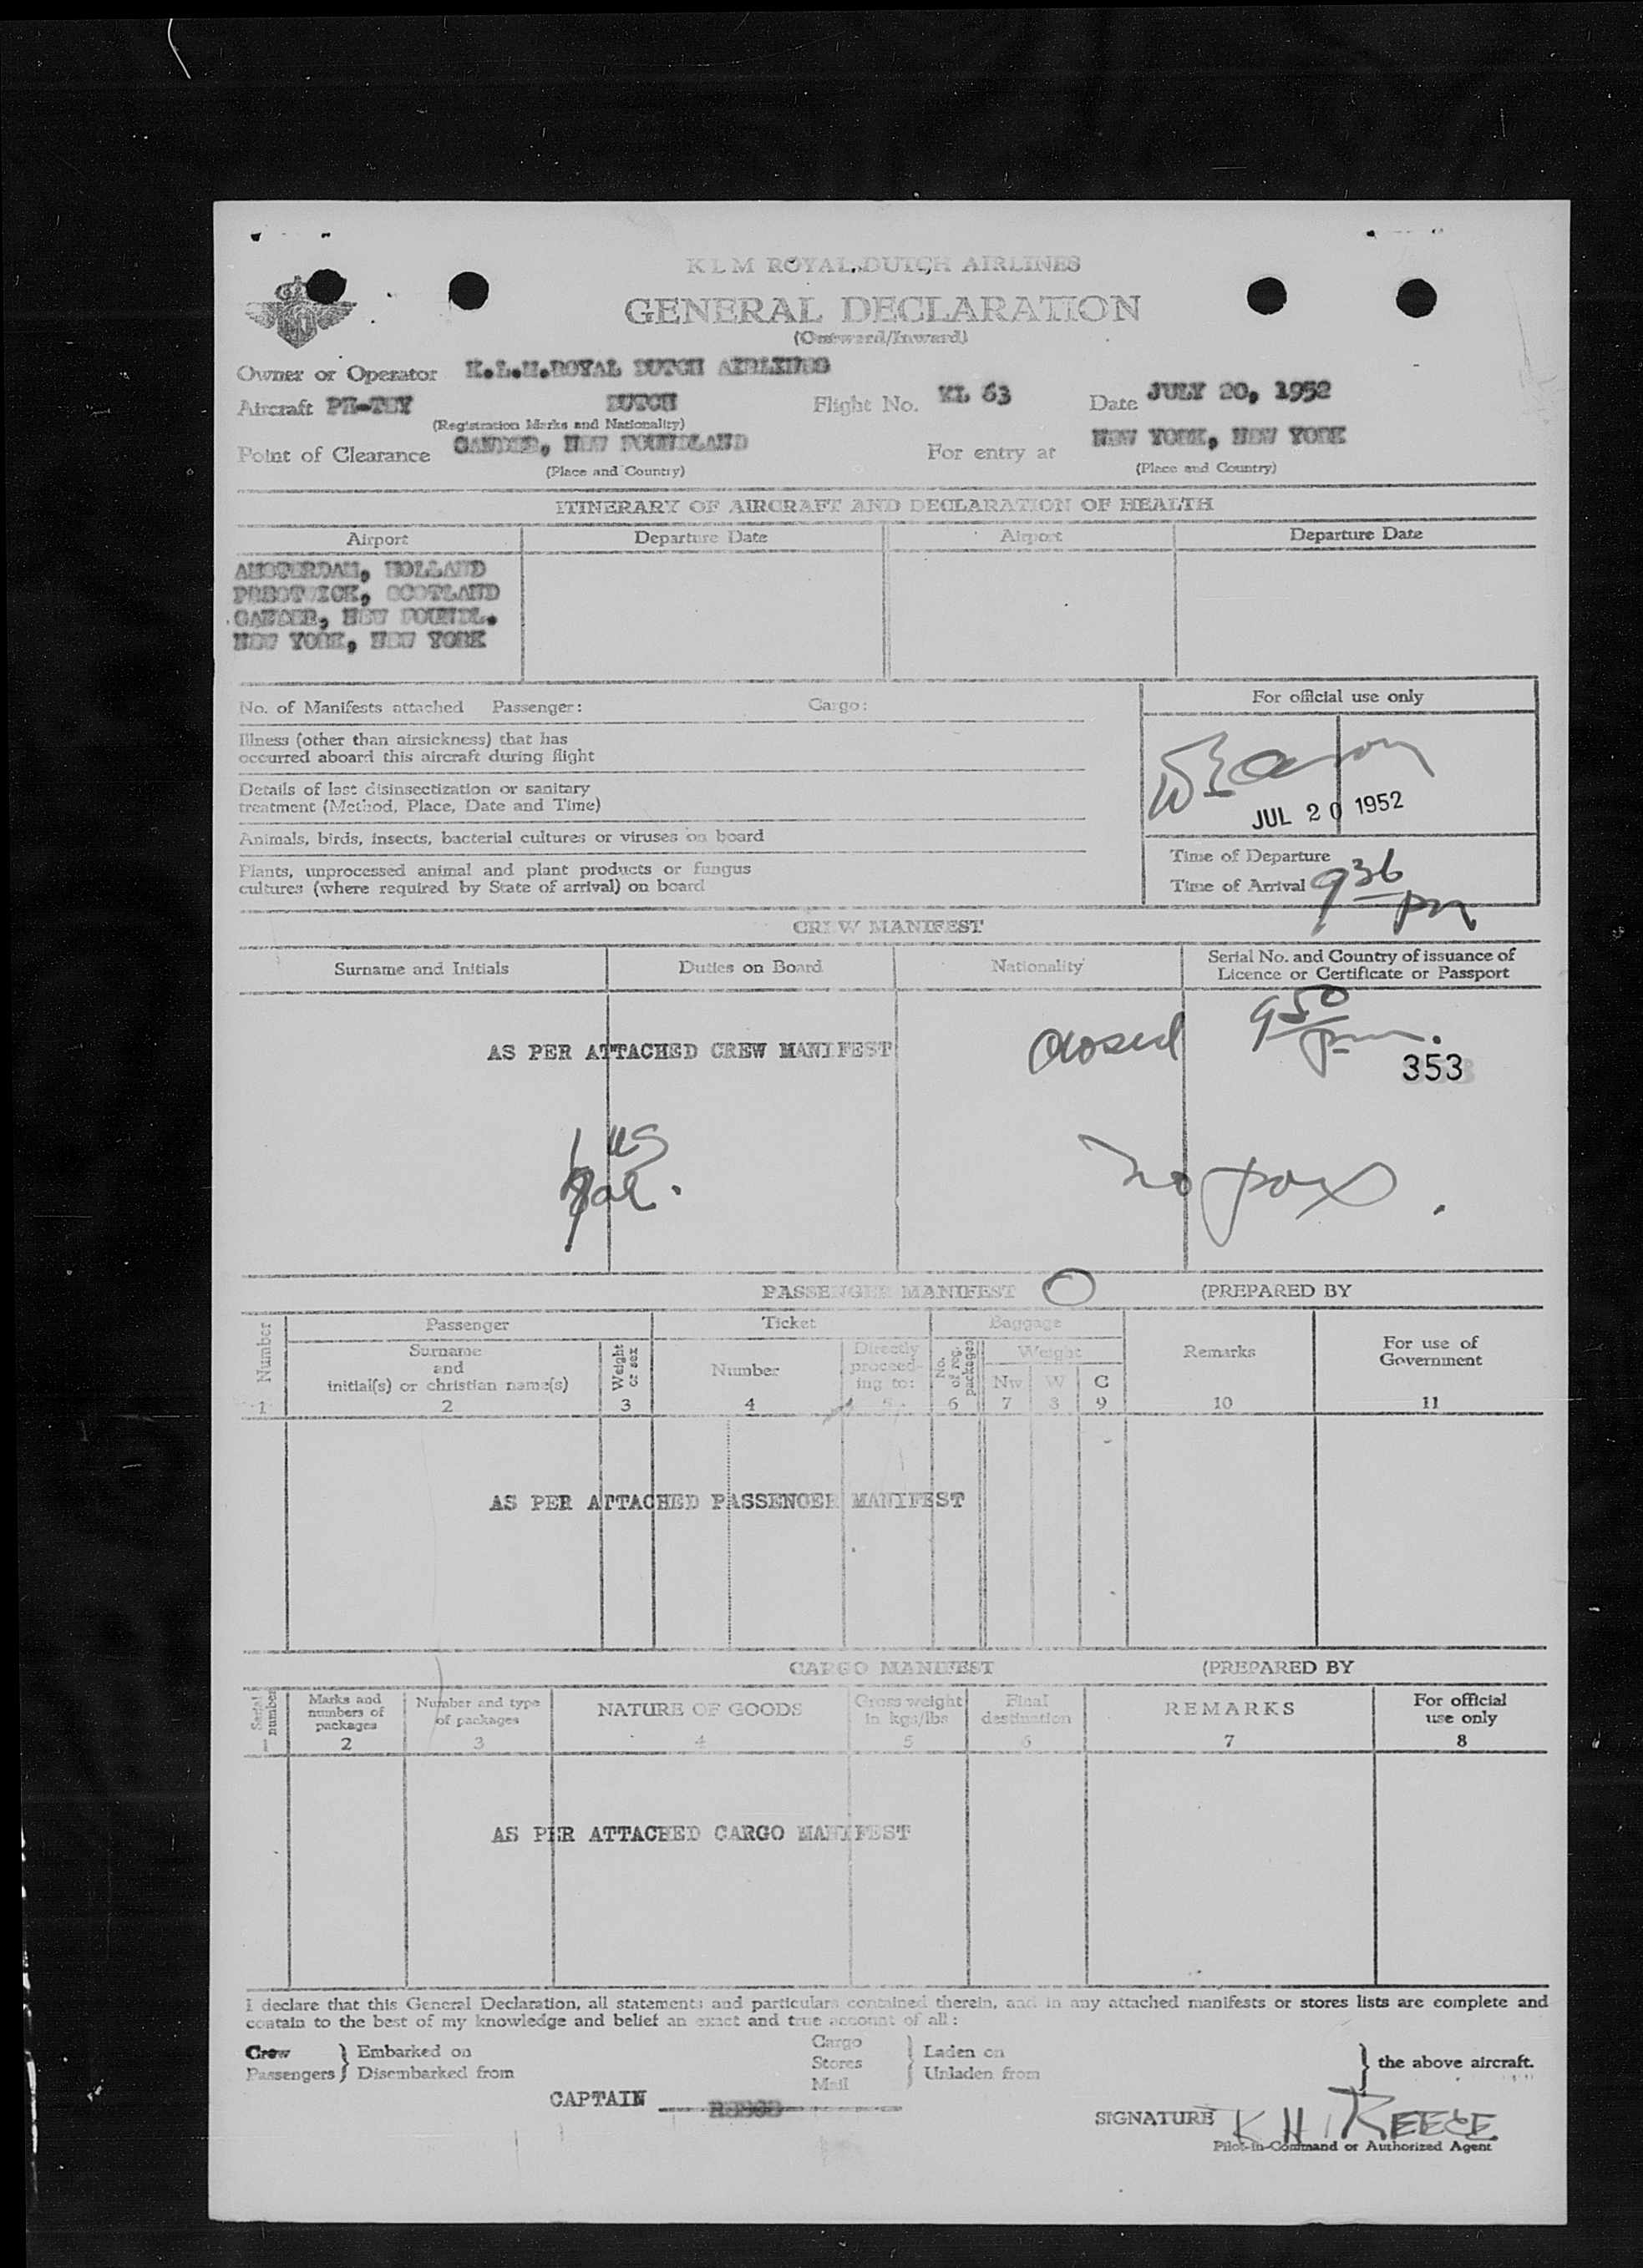 KLM ROYAL DUTCH AIRLINES
GENERAL DECLARATION
(Outward/Inward)
Owner or Operator K.L.M.ROYAL DUTCH AIRLINES
Aircraft DUTCH Flight No. KL 63 Date JULY 20, 1952
(Registration Marks and Nationality)
Point of Clearance GANDER, NEW FOUNDLAND For entry at NEW YORK, NEW YORK
(Place and Country) (Place and Country)
ITINERARY OF AIRCRAFT AND DECLARATION OF HEALTH
Airport Departure Date Airport Departure Date
AMSTERDAM, HOLLAND
PRESTWICK, SCOTLAND
GANDER, NEW FOUNDL.
NEW YORK, NEW YORK
No. of Manifests attached Passenger: Cargo: For official use only
Illness (other than airsickness) that has
occurred aboard this aircraft during flight
Details of last disinsectization or sanitary
treatment (Method, Place, Date and Time)
JUL 20 1952
Animals, birds, insects, bacterial cultures or viruses on board
Time of Departure
Plants, unprocessed animal and plant products or fungus
cultures (where required by State of arrival) on board
Time of Arrival 936 pm
CREW MANIFEST
Surname and Initials Duties on Board Nationality Serial No. and Country of issuance of
Licence or Certificate or Passport
AS PER ATTACHED CREW MANIFEST closed 950 pm.
353
1 US
no pax.
PASSENGER MANIFEST (PREPARED BY
Number Passenger Ticket Baggage Remarks For use of
Government
Surname
and
initial(s) or christian name(s) Weight
or sex Number Directly
proceed-
ing to: No.
of reg.
packages Weight
Nw W C
1 2 3 4 5 6 7 8 9 10 11
AS PER ATTACHED PASSENGER MANIFEST
CARGO MANIFEST (PREPARED BY
Serial
number Marks and
numbers of
packages Number and type
of packages NATURE OF GOODS Gross weight
in kgs/lbs Final
destination REMARKS For official
use only
1 2 3 4 5 6 7 8
AS PER ATTACHED CARGO MANIFEST
I declare that this General Declaration, all statements and particulars contained therein, and in any attached manifests or stores lists are complete and
contain to the best of my knowledge and belief an exact and true account of all:
Crew } Embarked on Cargo } Laden on } the above aircraft.
Passengers } Disembarked from Stores Unladen from
Mail
CAPTAIN REECE
SIGNATURE K H REECE
Pilot-in-Command or Authorized Agent